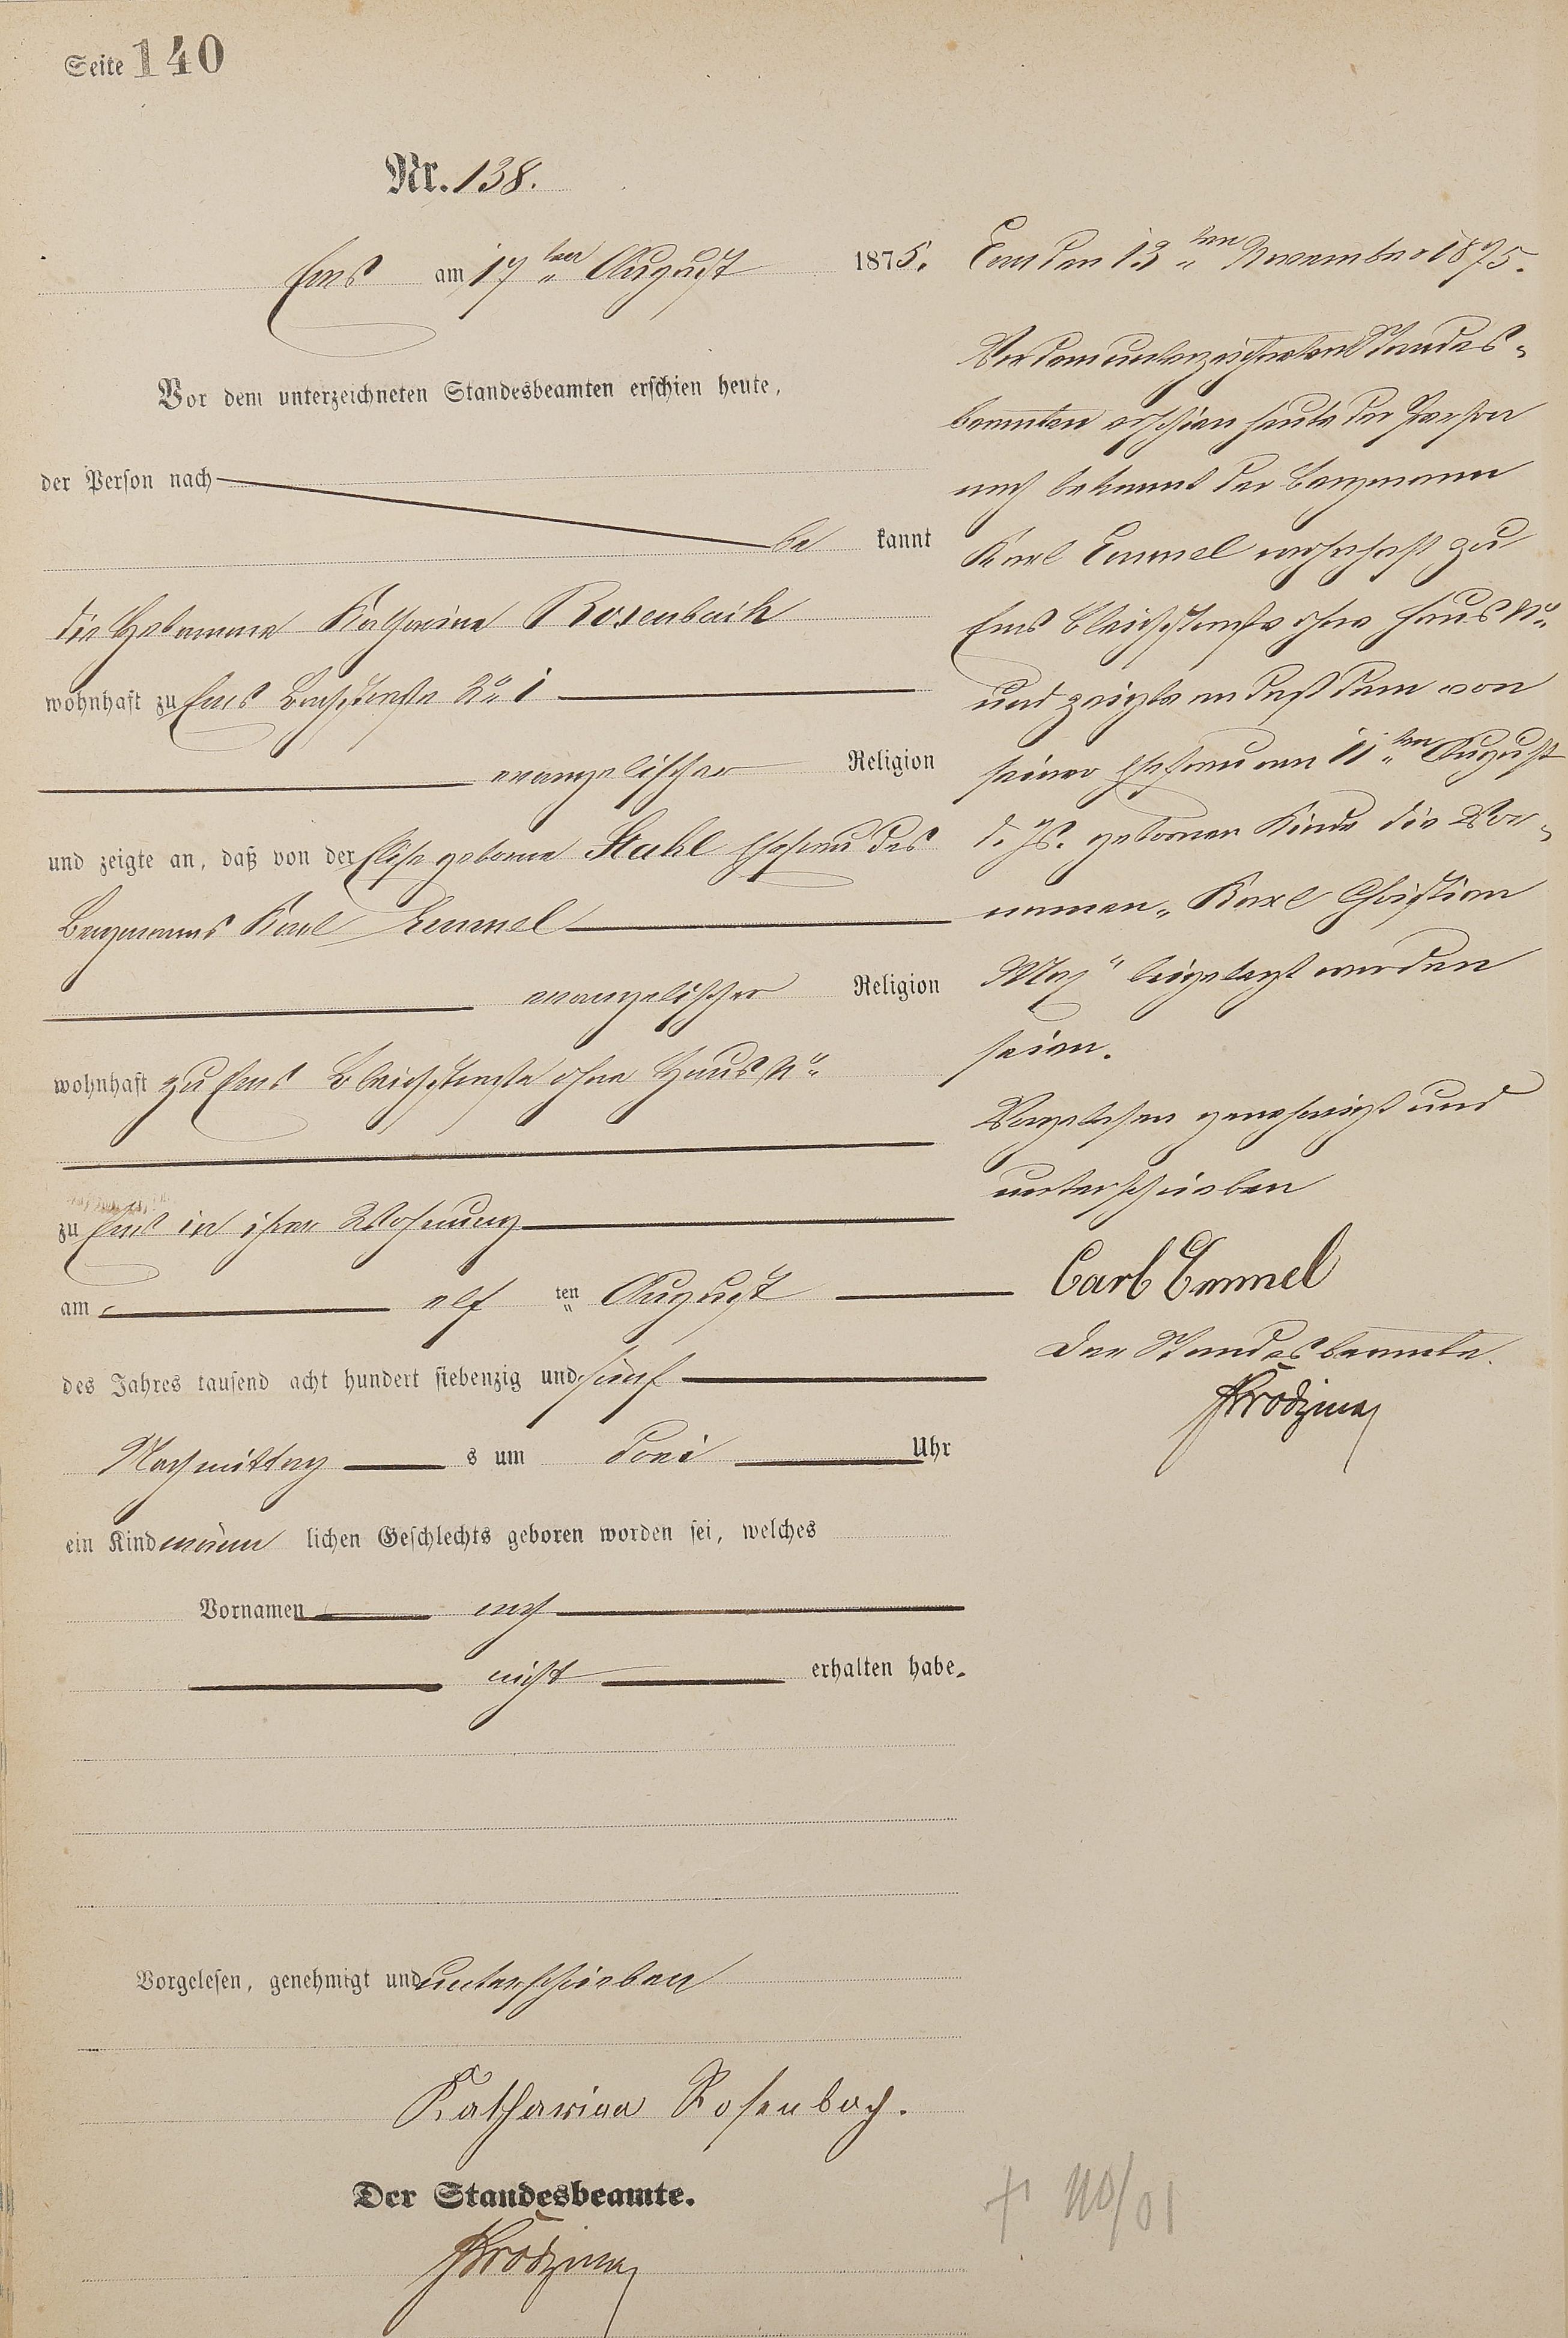 Seite 140
Nr. 138.
Ems am 17ten August 1875.
Vor dem unterzeichneten Standesbeamten erschien heute,
der Person nach
be kannt
die Hebamme Katharina Rosenbach
wohnhaft zu Ems Bachstraße No 1
evangelischer Religion
und zeigte an, daß von der Elise geborne Stahl Ehefrau des
Bergmanns Karl Emmel
evangelischer Religion
wohnhaft zu Ems Bleichstraße ohne Haus No
zu Ems in ihrer Wohnung
am elf ten August
des Jahres tausend acht hundert siebenzig und fünf
Nachmittag s um drei Uhr
ein Kind männ lichen Geschlechts geboren worden sei, welches
Vornamen noch
nicht erhalten habe.
Vorgelesen, genehmigt und unterschrieben
Katharina Rosenbach.
Der Standesbeamte.
Ems den 13ten November 1875.
Vor dem unterzeichneten Standes-
beamten erschien heute der Person
nach bekannt der Bergmann
Karl Emmel wohnhaft zu
Ems Bleichstraße ohne Haus No
und zeigte an daß dem von
seiner Ehefrau am 11ten August
d. Js. gebornen Kinde die Vor-
namen "Karl Christian
Max" beigelegt worden
seien.
Vorgelesen genehmigt und
unterschrieben
Carl Emmel
Der Standesbeamte.